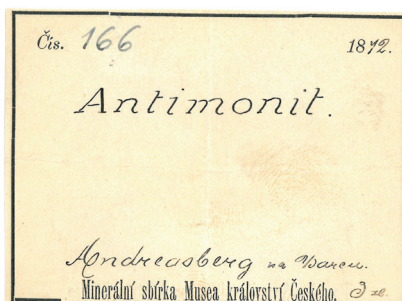 Čís. 166 1872.
Antimonit.
Andreasberg na Harcu.
Minerální sbírka Musea království Českého. 3 zl.